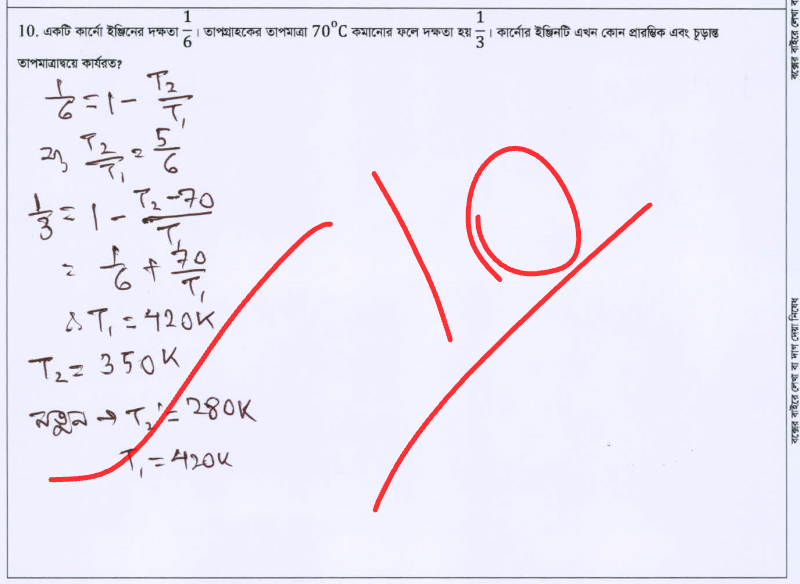 10. একটি কার্নো ইঞ্জিনের দক্ষতা 1/6। তাপগ্রাহকের তাপমাত্রা 70°C কমানোর ফলে দক্ষতা হয় 1/3। কার্নোর ইঞ্জিনটি এখন কোন প্রারম্ভিক এবং চূড়ান্ত
তাপমাত্রাদ্বয়ে কার্যরত?
1/6 = 1 - T₂/T₁
বা, T₂/T₁ = 5/6
1/3 = 1 - (T₂-70)/T₁
= 1/6 + 70/T₁
∴ T₁ = 420K
T₂ = 350K
নতুন → T₂' = 280K
T₁ = 420K
10
বক্সের বাইরে লেখা বা দাগ দেয়া নিষেধ
বক্সের বাইরে লেখা ব